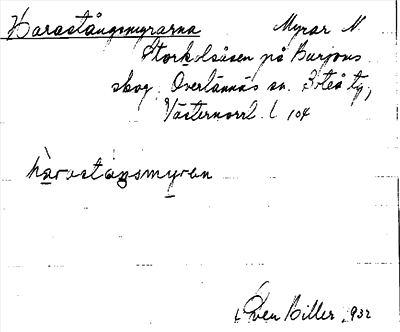 Harastångsmyrarna Myrar N.
Storkolåsen på Burjons
skog. Överlännäs sn. 3steå tg,
Västernorrl. l 104
hàrastaŋsmyren
Sven Biller 1932